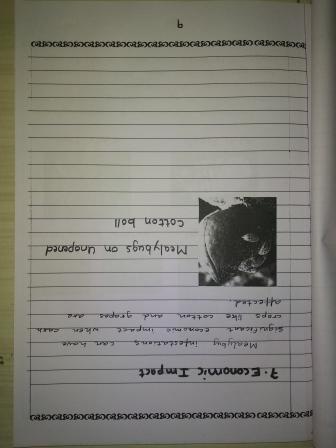 7. Economic Impact
Mealybug infestations can have
significant economic impact when cash
crops like cotton and grapes are
affected.
Mealybugs on Unopened
Cotton boll
9